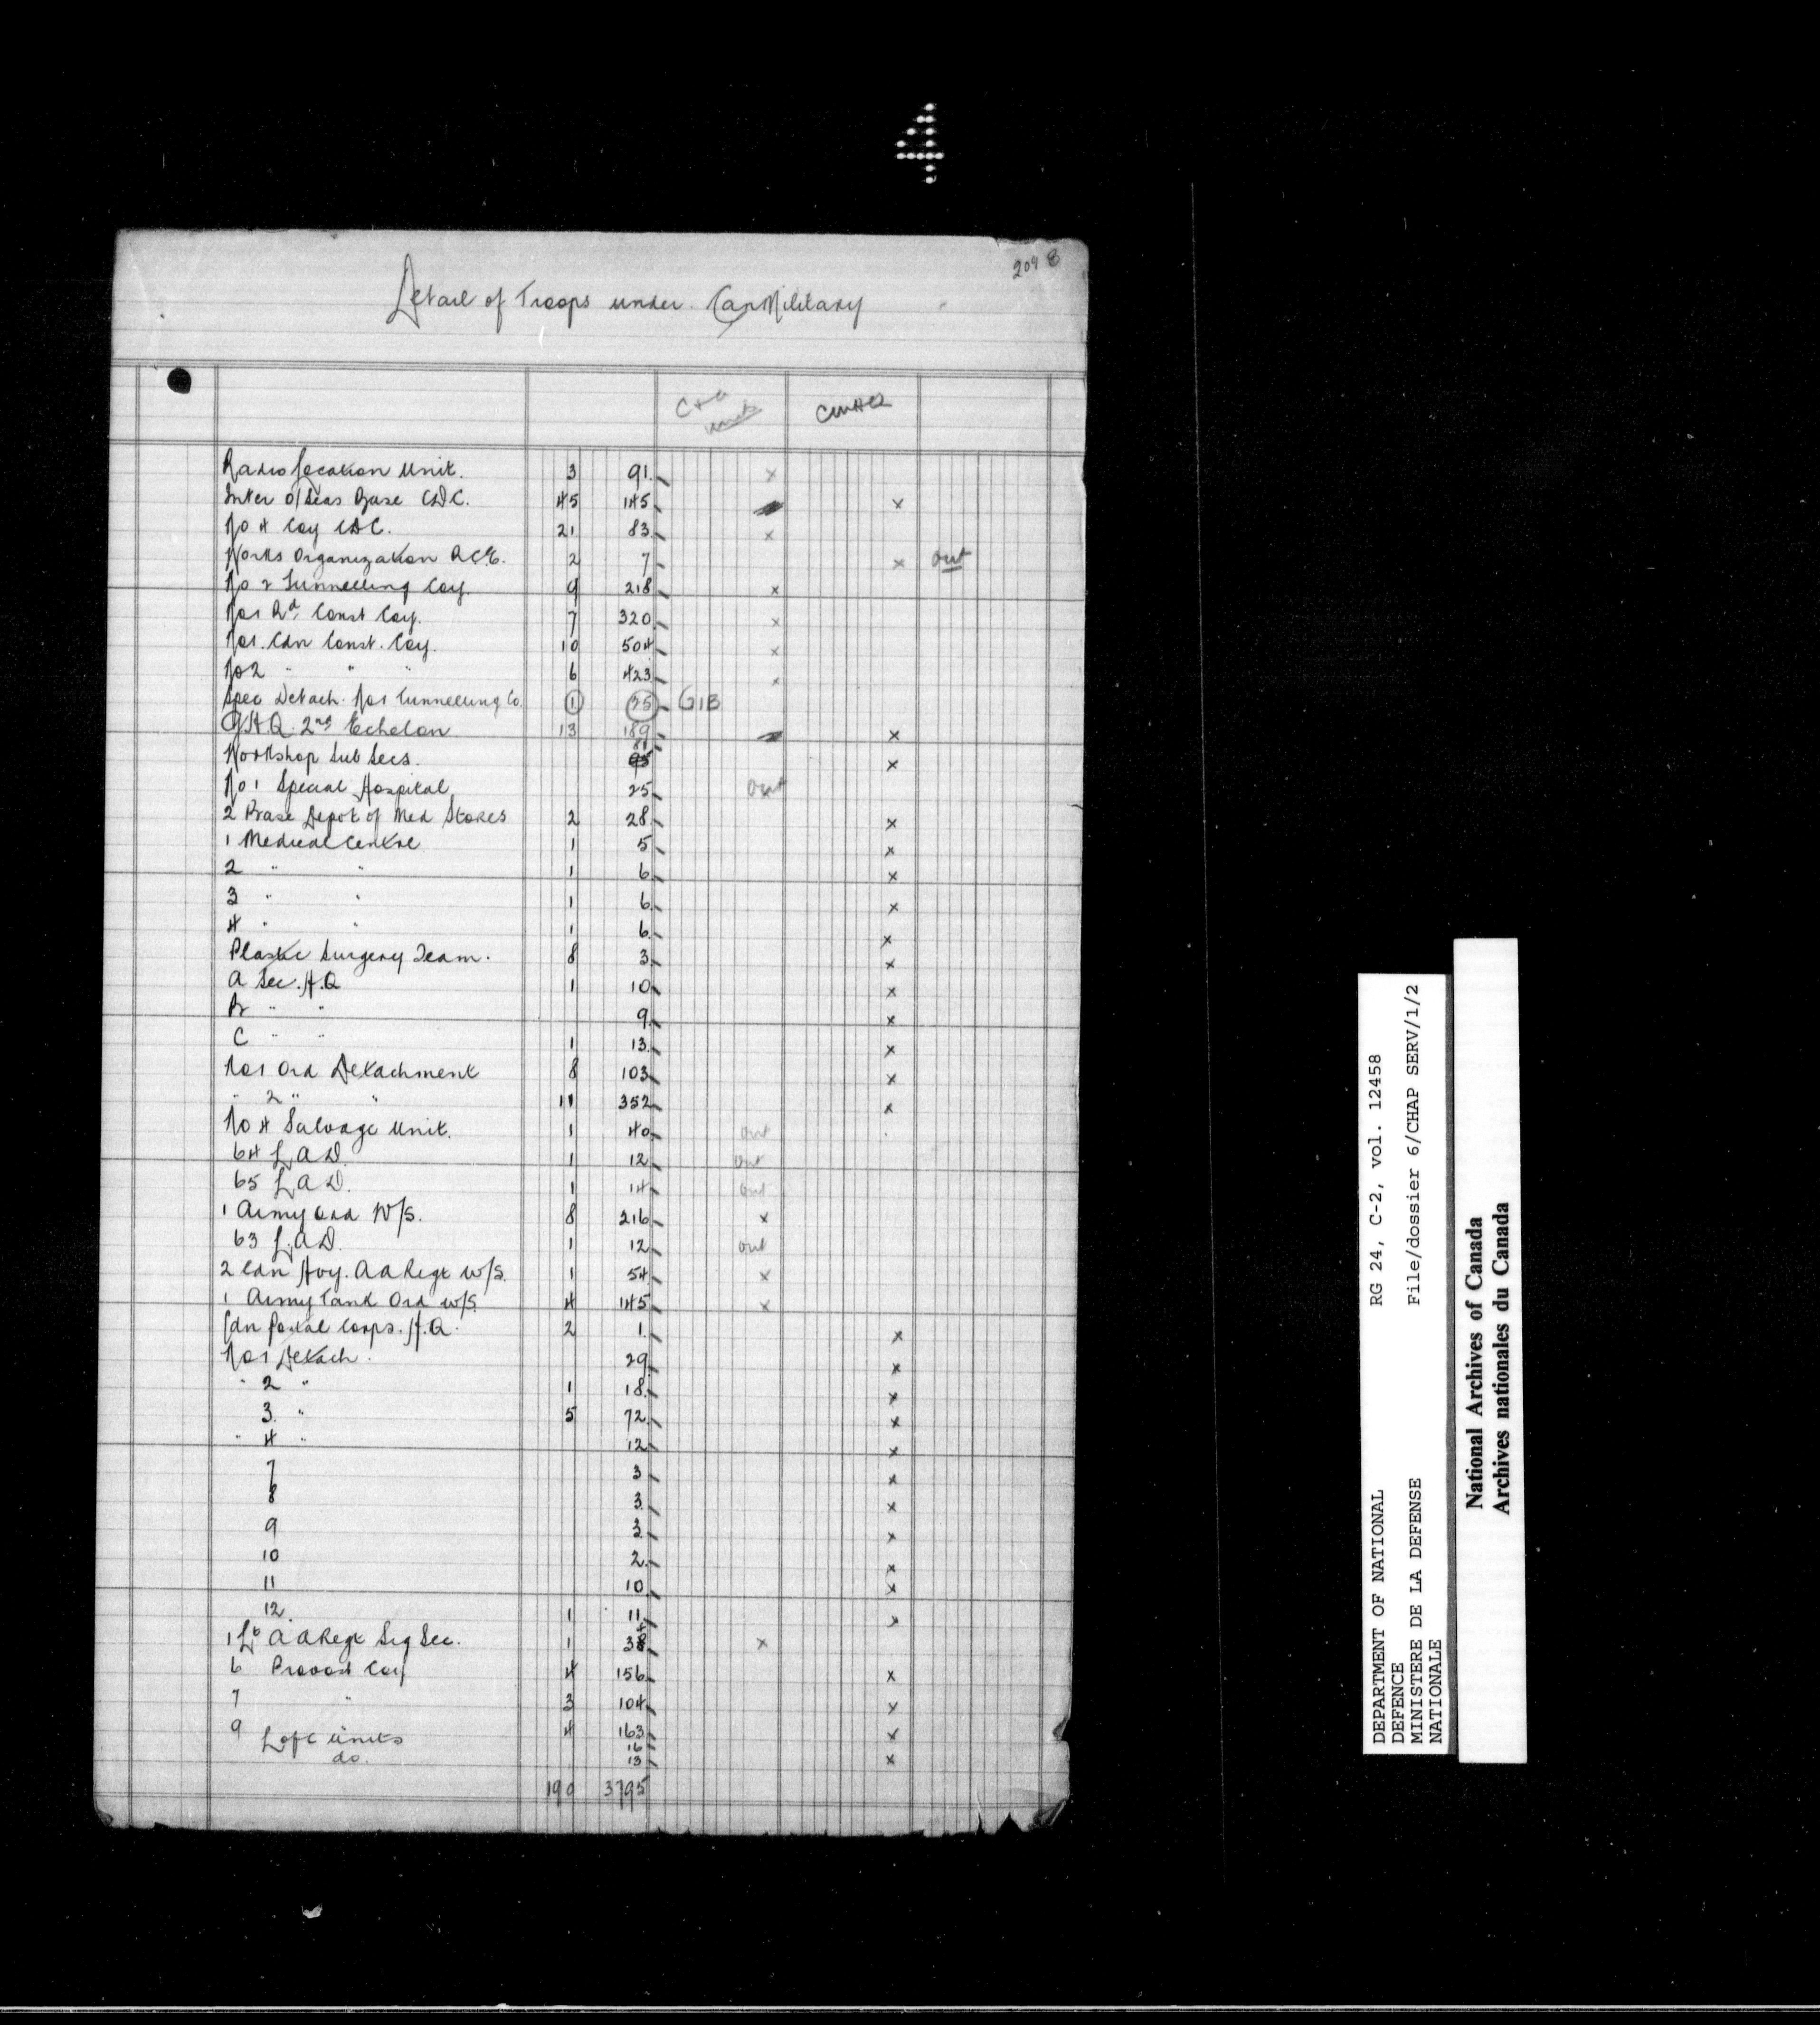 4
209 8
Detail of Troops under CanMilitary
C+A units CMHQ
Radio Location Unit. 3 91. x
Inter O/Seas Base CDC. 45 145 x
No 4 Coy CDC. 21 83 x
Works Organization RCE. 2 7 x out
No 2 Tunnelling Coy. 9 218 x
No1 Rd. Const Coy. 7 320 x
No1. Cdn Const. Coy. 10 504 x
No2 " " " 6 423 x
Spec Detach. No1 Tunnelling Co. 1 GIB
GHQ. 2nd Echelon 13 189 x
Workshop Sub Secs. 81 95 x
No 1 Special Hospital 25 out
2 Base Depot of Med Stores 2 28 x
1 Medical Centre 1 5 x
2 " " 1 6 x
3 " " 1 6 x
4 " " 1 6 x
Plastic Surgery Team. 8 3 x
A Sec. H.Q 1 10 x
B " " 9 x
C " " 1 13 x
No1 Ord Detachment 8 103 x
" 2 " " 11 352 x
No 4 Salvage Unit. 1 40 out
64 L A D. 1 12 out
65 L A D. 1 14 out
1 Army Ord W/S. 8 216 x
63 L.A.D. 1 12 out
2 Cdn Hvy. A A Regt W/S. 1 54 x
1 Army Tank Ord W/S. 4 145 x
Cdn Postal Corps. H.Q. 2 1. x
No1 Detach. 29 x
" 2 " 1 18 x
3. " 5 72 x
" 4 " 12 x
7 3 x
8 3 x
9 3 x
10 2 x
11 10 x
12. 1 11 x
1 Lt A A Regt Sig Sec. 1 38 x
6 Provost Coy 4 156 x
7 " 3 104 x
9 4 163 x
Loft Units 16
do. 13 x
190 3795
DEPARTMENT OF NATIONAL DEFENCE
MINISTERE DE LA DEFENSE NATIONALE
RG 24, C-2, vol. 12458
File/dossier 6/CHAP SERV/1/2
National Archives of Canada
Archives nationales du Canada